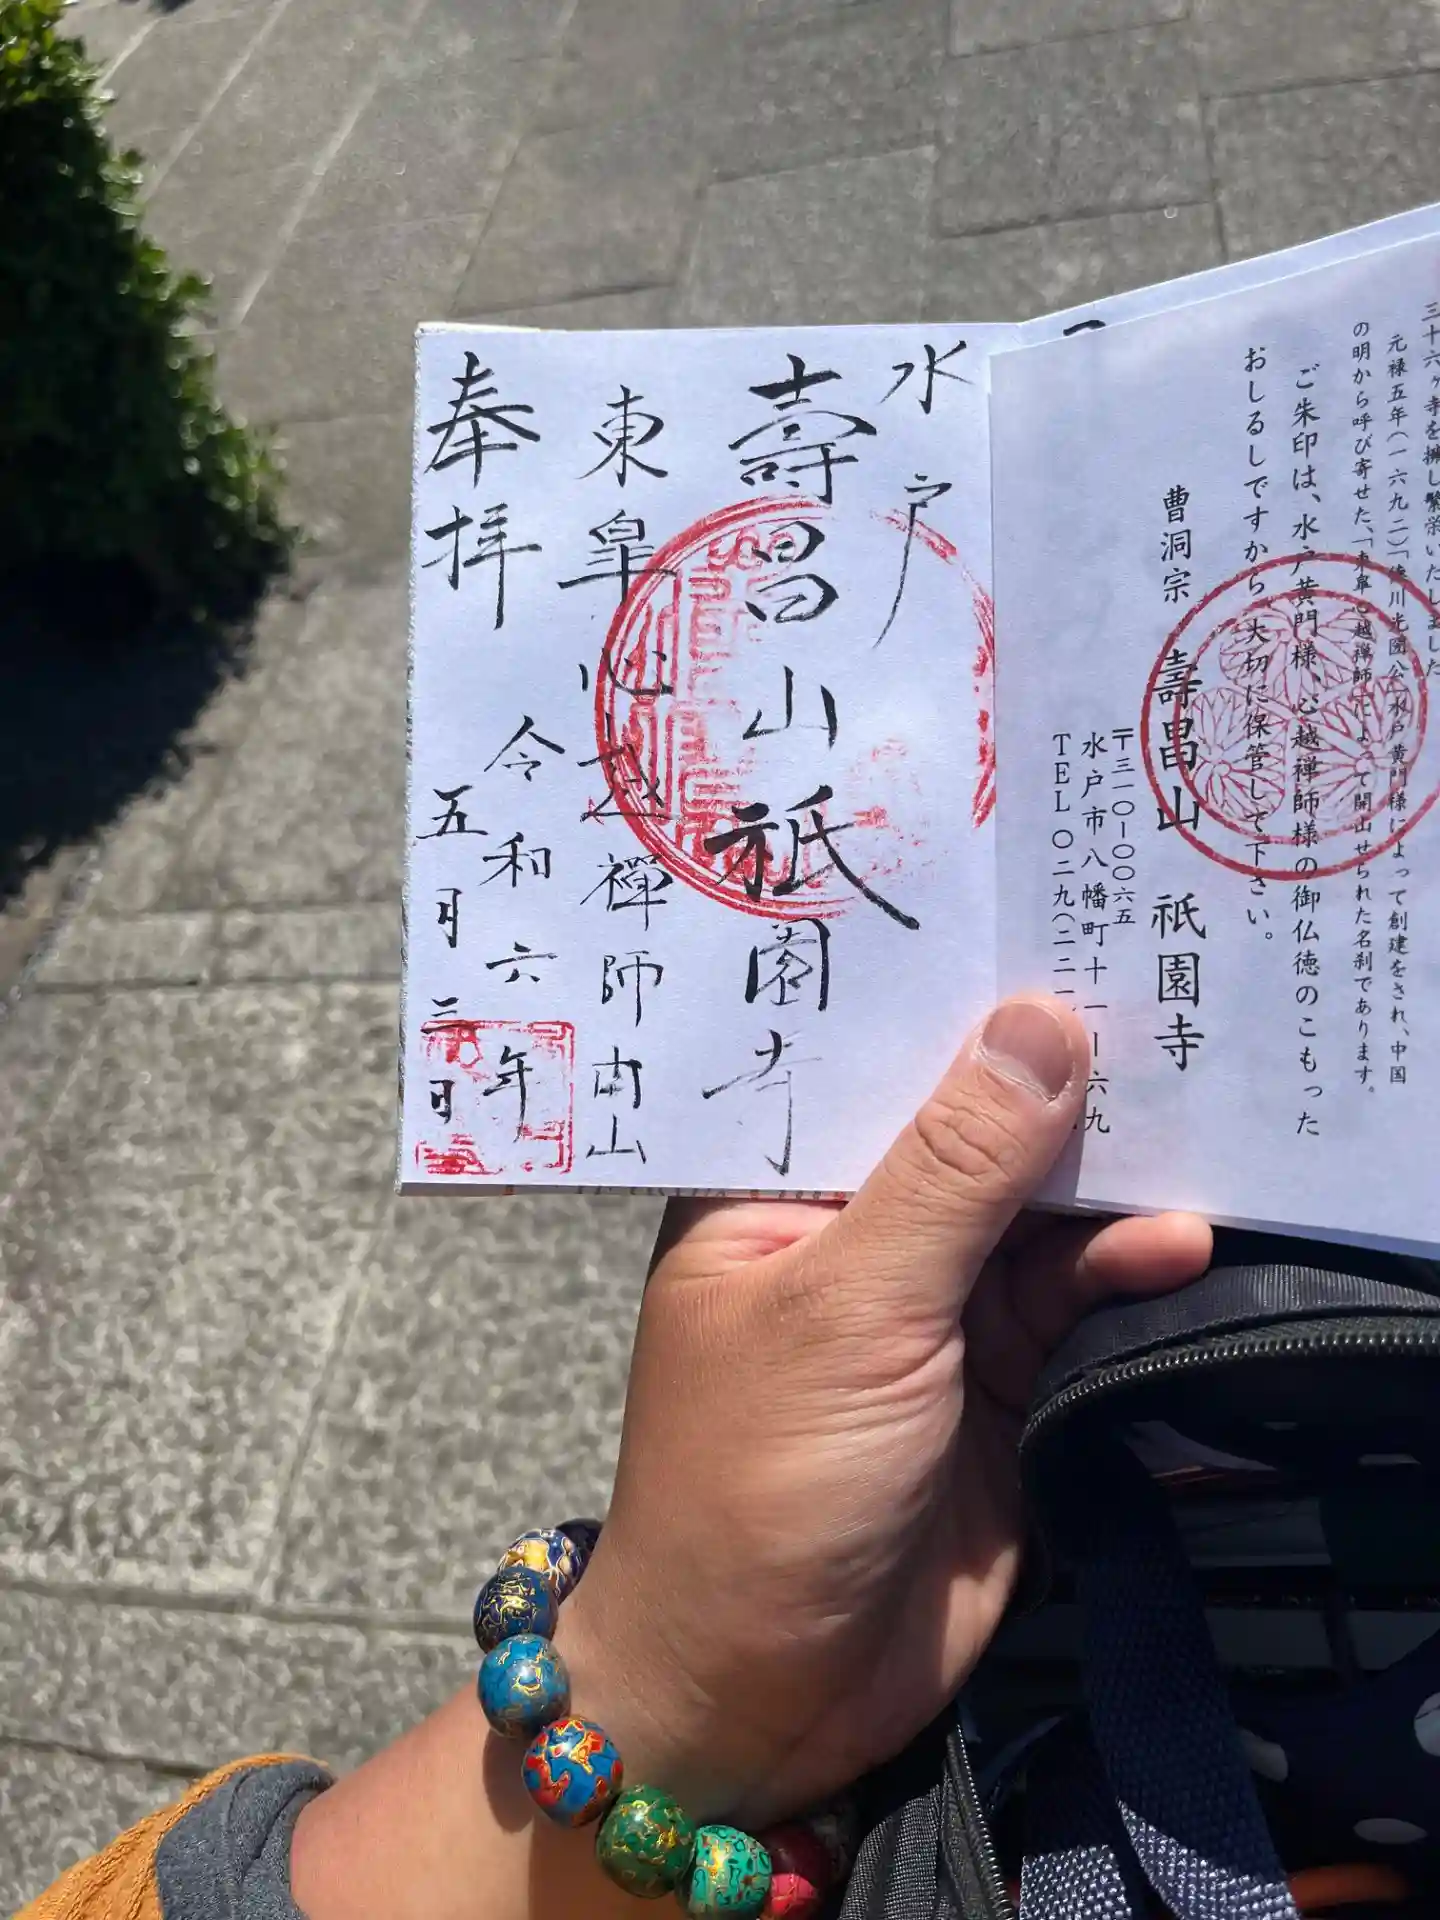 三十六ヶ寺を擁し繁栄いたしました
元禄五年(一六九二)「徳川光圀公(水戸黄門様)によって創建をされ、中国
の明から呼び寄せた、「東皐心越禅師」によって開山せられた名刹であります。
ご朱印は、水戸黄門様、心越禅師様の御仏徳のこもった
おしるしですから、大切に保管して下さい。
曹洞宗 壽昌山 祇園寺
〒三一〇ー〇〇六五
水戸市八幡町十一ー六九
TEL 〇二九(二二一
水戸
壽昌山祇園寺
東皐心越禪師開山
奉拝
令和六年
五月三日